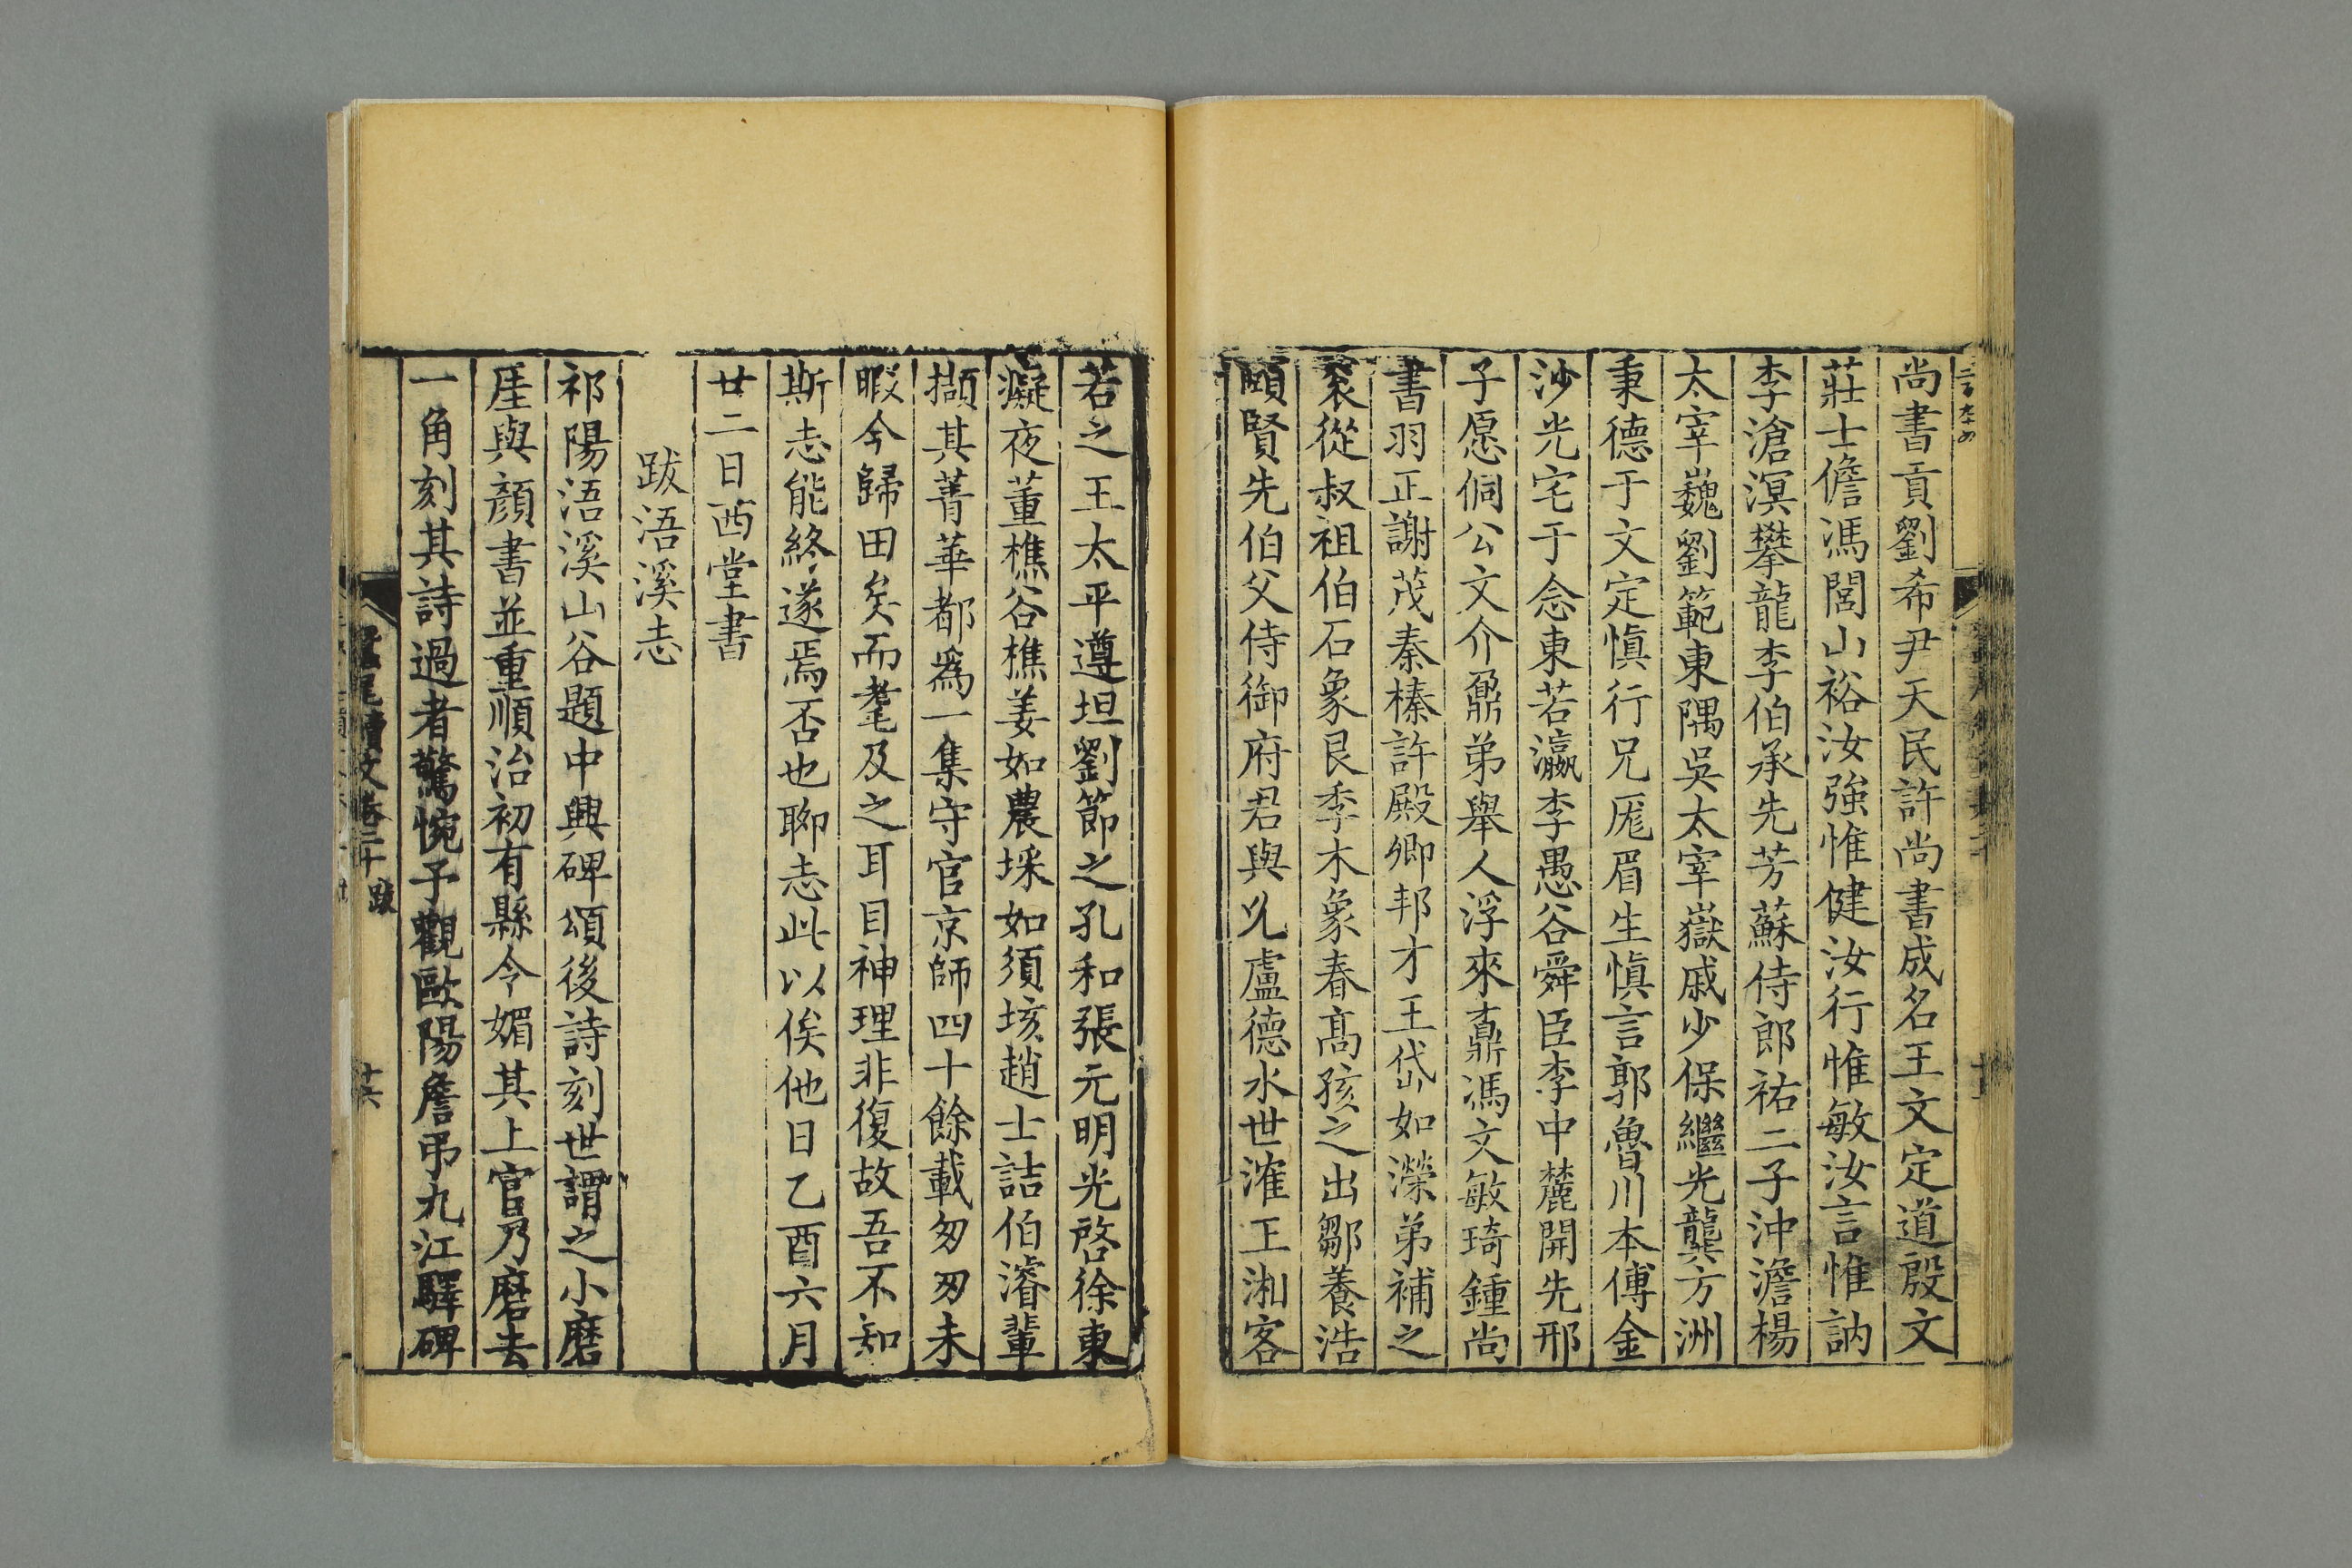 尚書貢劉希尹天民許尚書成名王文定道殷文
莊士儋馮閭山裕汝強惟健汝行惟敏汝言惟訥
李滄溟攀龍李伯承先芳蘇侍郎祐二子沖澹楊
太宰巍劉範東隅吳太宰嶽戚少保繼光龔方洲
秉德于文定慎行兄厖眉生慎言郭魯川本傅金
沙光宅于念東若瀛李愚谷舜臣李中麓開先邢
子愿侗公文介鼐弟舉人浮來鼒馮文敏琦鍾尚
書羽正謝茂秦榛許殿卿邦才王岱如濚弟補之
袞從叔祖伯石象艮季木象春高孩之出鄒養浩
頤賢先伯父侍御府君與兄盧德水世㴶王湘客
若之王太平遵坦劉節之孔和張元明光啓徐東
癡夜董樵谷樵姜如農埰如須垓趙士喆伯濬輩
擷其菁華都爲一集守官京師四十餘載匆匆未
暇今歸田矣而耄及之耳目神理非復故吾不知
斯志能終遂焉否也聊志此以俟他日乙酉六月
廿二日西堂書
跋浯溪志
祁陽浯溪山谷題中興碑頌後詩刻世謂之小磨
厓與顏書並重順治初有縣令媚其上官乃磨去
一角刻其詩過者驚惋予觀歐陽詹弔九江驛碑
蠶尾續文卷二十 跋
十六